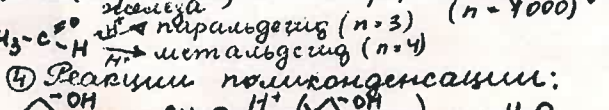 железа (n = 4000)
H₃-C-H H⁺ паральдегид (n=3)
H⁺ метальдегид (n=4)
④ Реакции поликонденсации:
OH H⁺ OH